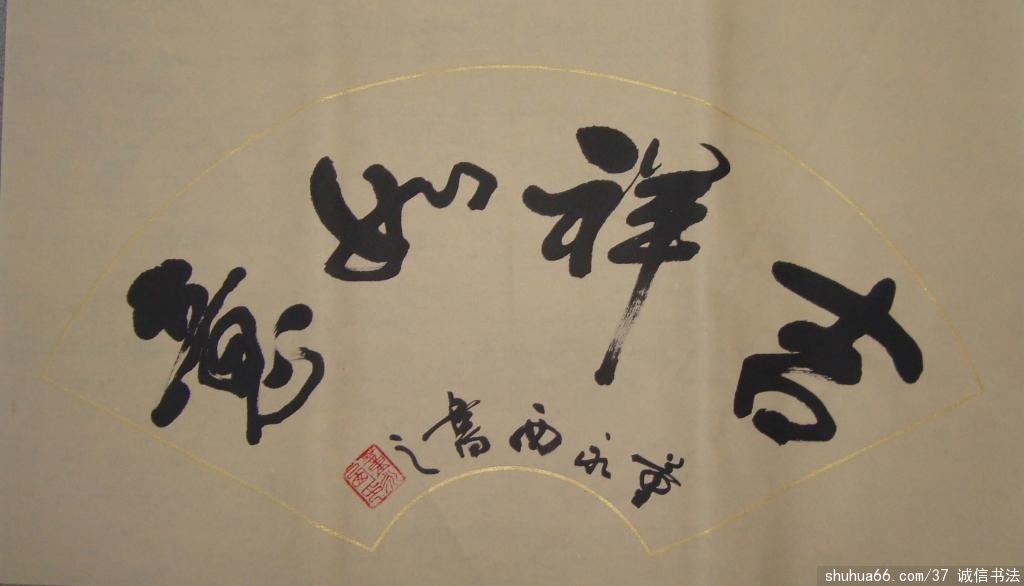 吉祥如意
永西書之
shuhua66.com/37 诚信书法